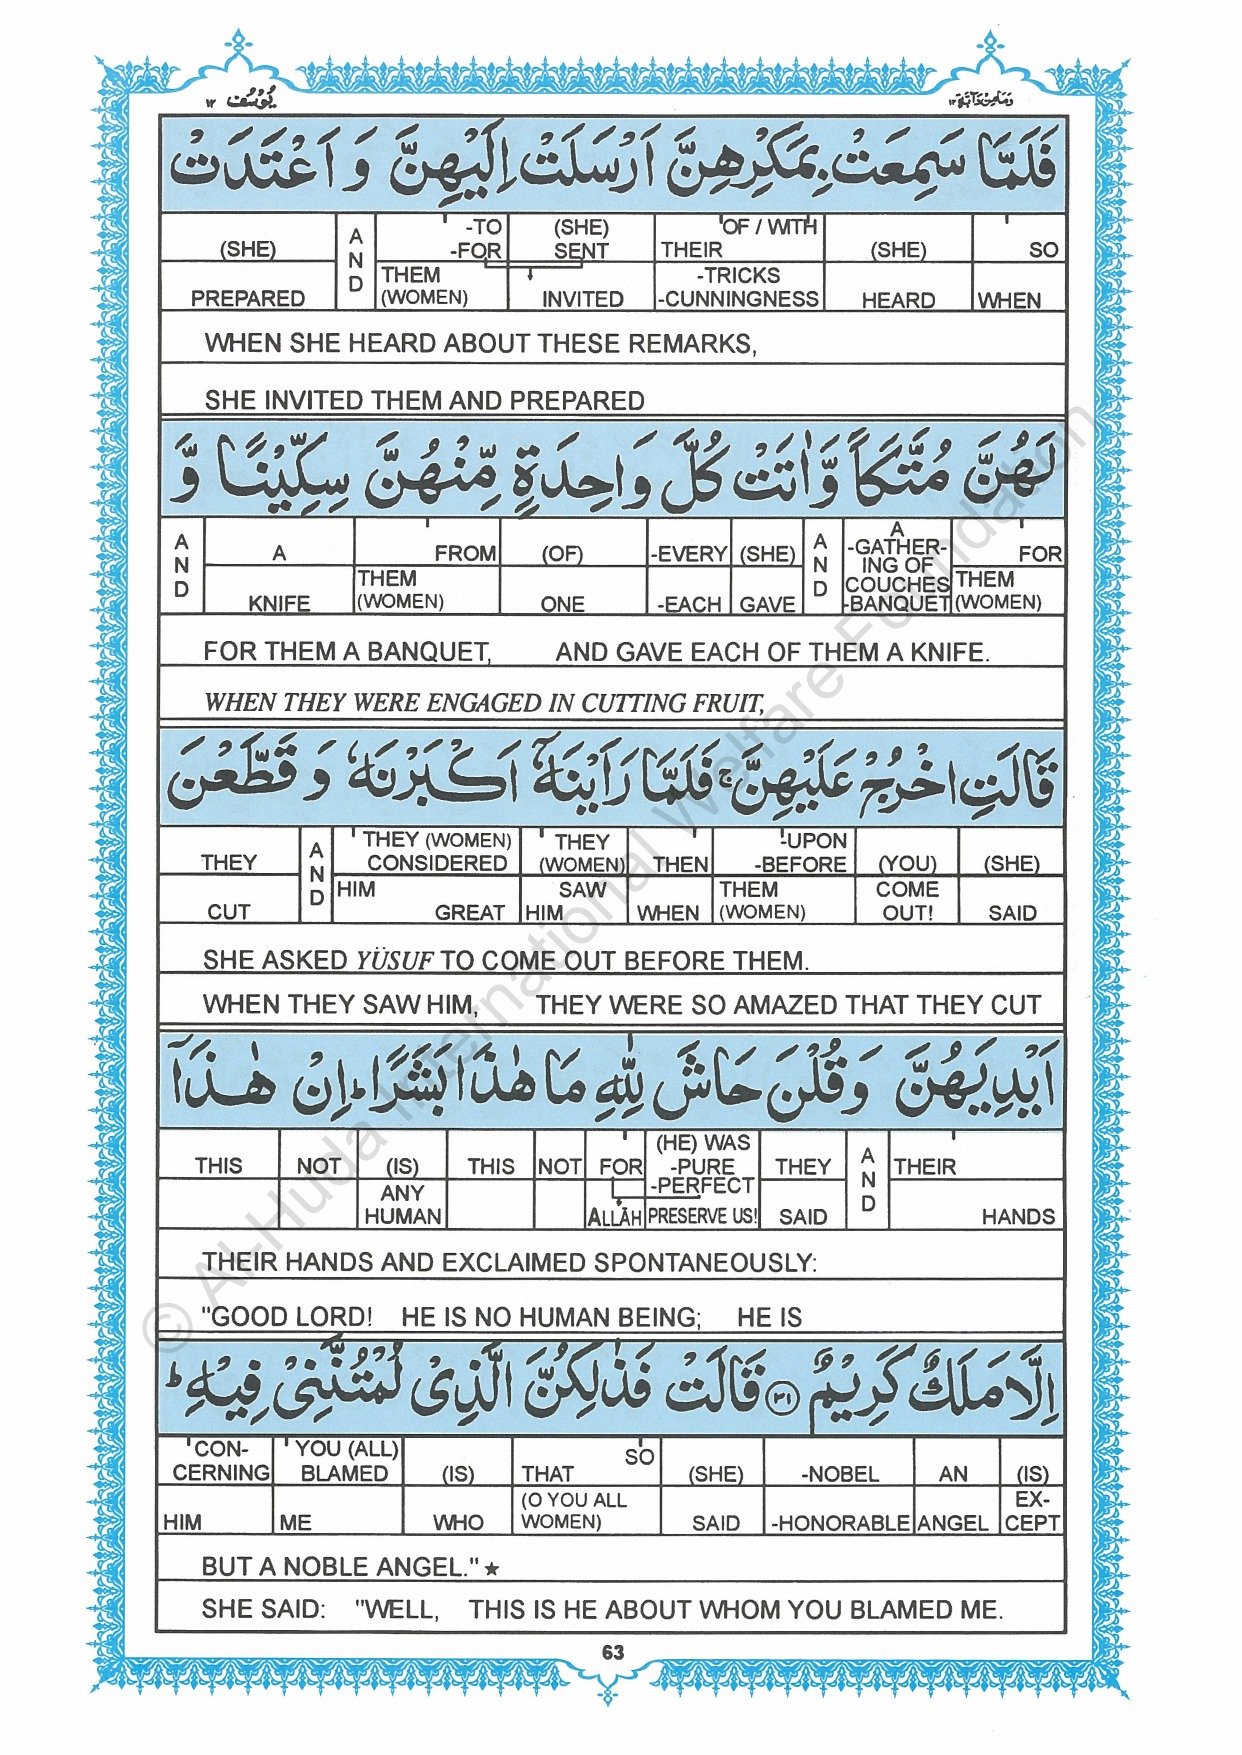 وَمَا مِنْ دَآبَّةٍ ١٢ يُوْسُف ١٢
فَلَمَّا سَمِعَتْ بِمَكْرِهِنَّ اَرْسَلَتْ اِلَيْهِنَّ وَ اَعْتَدَتْ
(SHE) AND -TO (SHE) OF / WITH (SHE) SO
-FOR SENT THEIR
PREPARED THEM (WOMEN) INVITED -TRICKS -CUNNINGNESS HEARD WHEN
WHEN SHE HEARD ABOUT THESE REMARKS,
SHE INVITED THEM AND PREPARED
لَهُنَّ مُتَّكَاً وَّاٰتَتْ كُلَّ وَاحِدَةٍ مِّنْهُنَّ سِكِّيْنًا وَّ
AND A FROM (OF) -EVERY (SHE) AND A -GATHER-ING OF COUCHES -BANQUET FOR
KNIFE THEM (WOMEN) ONE -EACH GAVE THEM (WOMEN)
FOR THEM A BANQUET, AND GAVE EACH OF THEM A KNIFE.
WHEN THEY WERE ENGAGED IN CUTTING FRUIT,
قَالَتِ اخْرُجْ عَلَيْهِنَّ ۚ فَلَمَّا رَاَيْنَهٗٓ اَكْبَرْنَهٗ وَ قَطَّعْنَ
THEY AND THEY (WOMEN) CONSIDERED THEY (WOMEN) THEN -UPON -BEFORE (YOU) (SHE)
CUT HIM GREAT SAW HIM WHEN THEM (WOMEN) COME OUT! SAID
SHE ASKED YÜSUF TO COME OUT BEFORE THEM.
WHEN THEY SAW HIM, THEY WERE SO AMAZED THAT THEY CUT
اَيْدِيَهُنَّ وَقُلْنَ حَاشَ لِلّٰهِ مَا هٰذَا بَشَرًا ؕ اِنْ هٰذَآ
THIS NOT (IS) THIS NOT FOR (HE) WAS -PURE -PERFECT THEY AND THEIR
ANY HUMAN ALLĀH PRESERVE US! SAID HANDS
THEIR HANDS AND EXCLAIMED SPONTANEOUSLY:
"GOOD LORD! HE IS NO HUMAN BEING; HE IS
اِلَّا مَلَكٌ كَرِيْمٌ ۝٣١ قَالَتْ فَذٰلِكُنَّ الَّذِىْ لُمْتُنَّنِىْ فِيْهِ ؕ
CON-CERNING YOU (ALL) BLAMED (IS) THAT SO (SHE) -NOBEL AN (IS)
HIM ME WHO (O YOU ALL WOMEN) SAID -HONORABLE ANGEL EX-CEPT
BUT A NOBLE ANGEL." ★
SHE SAID: "WELL, THIS IS HE ABOUT WHOM YOU BLAMED ME.
63
© Al-Huda International Welfare Foundation